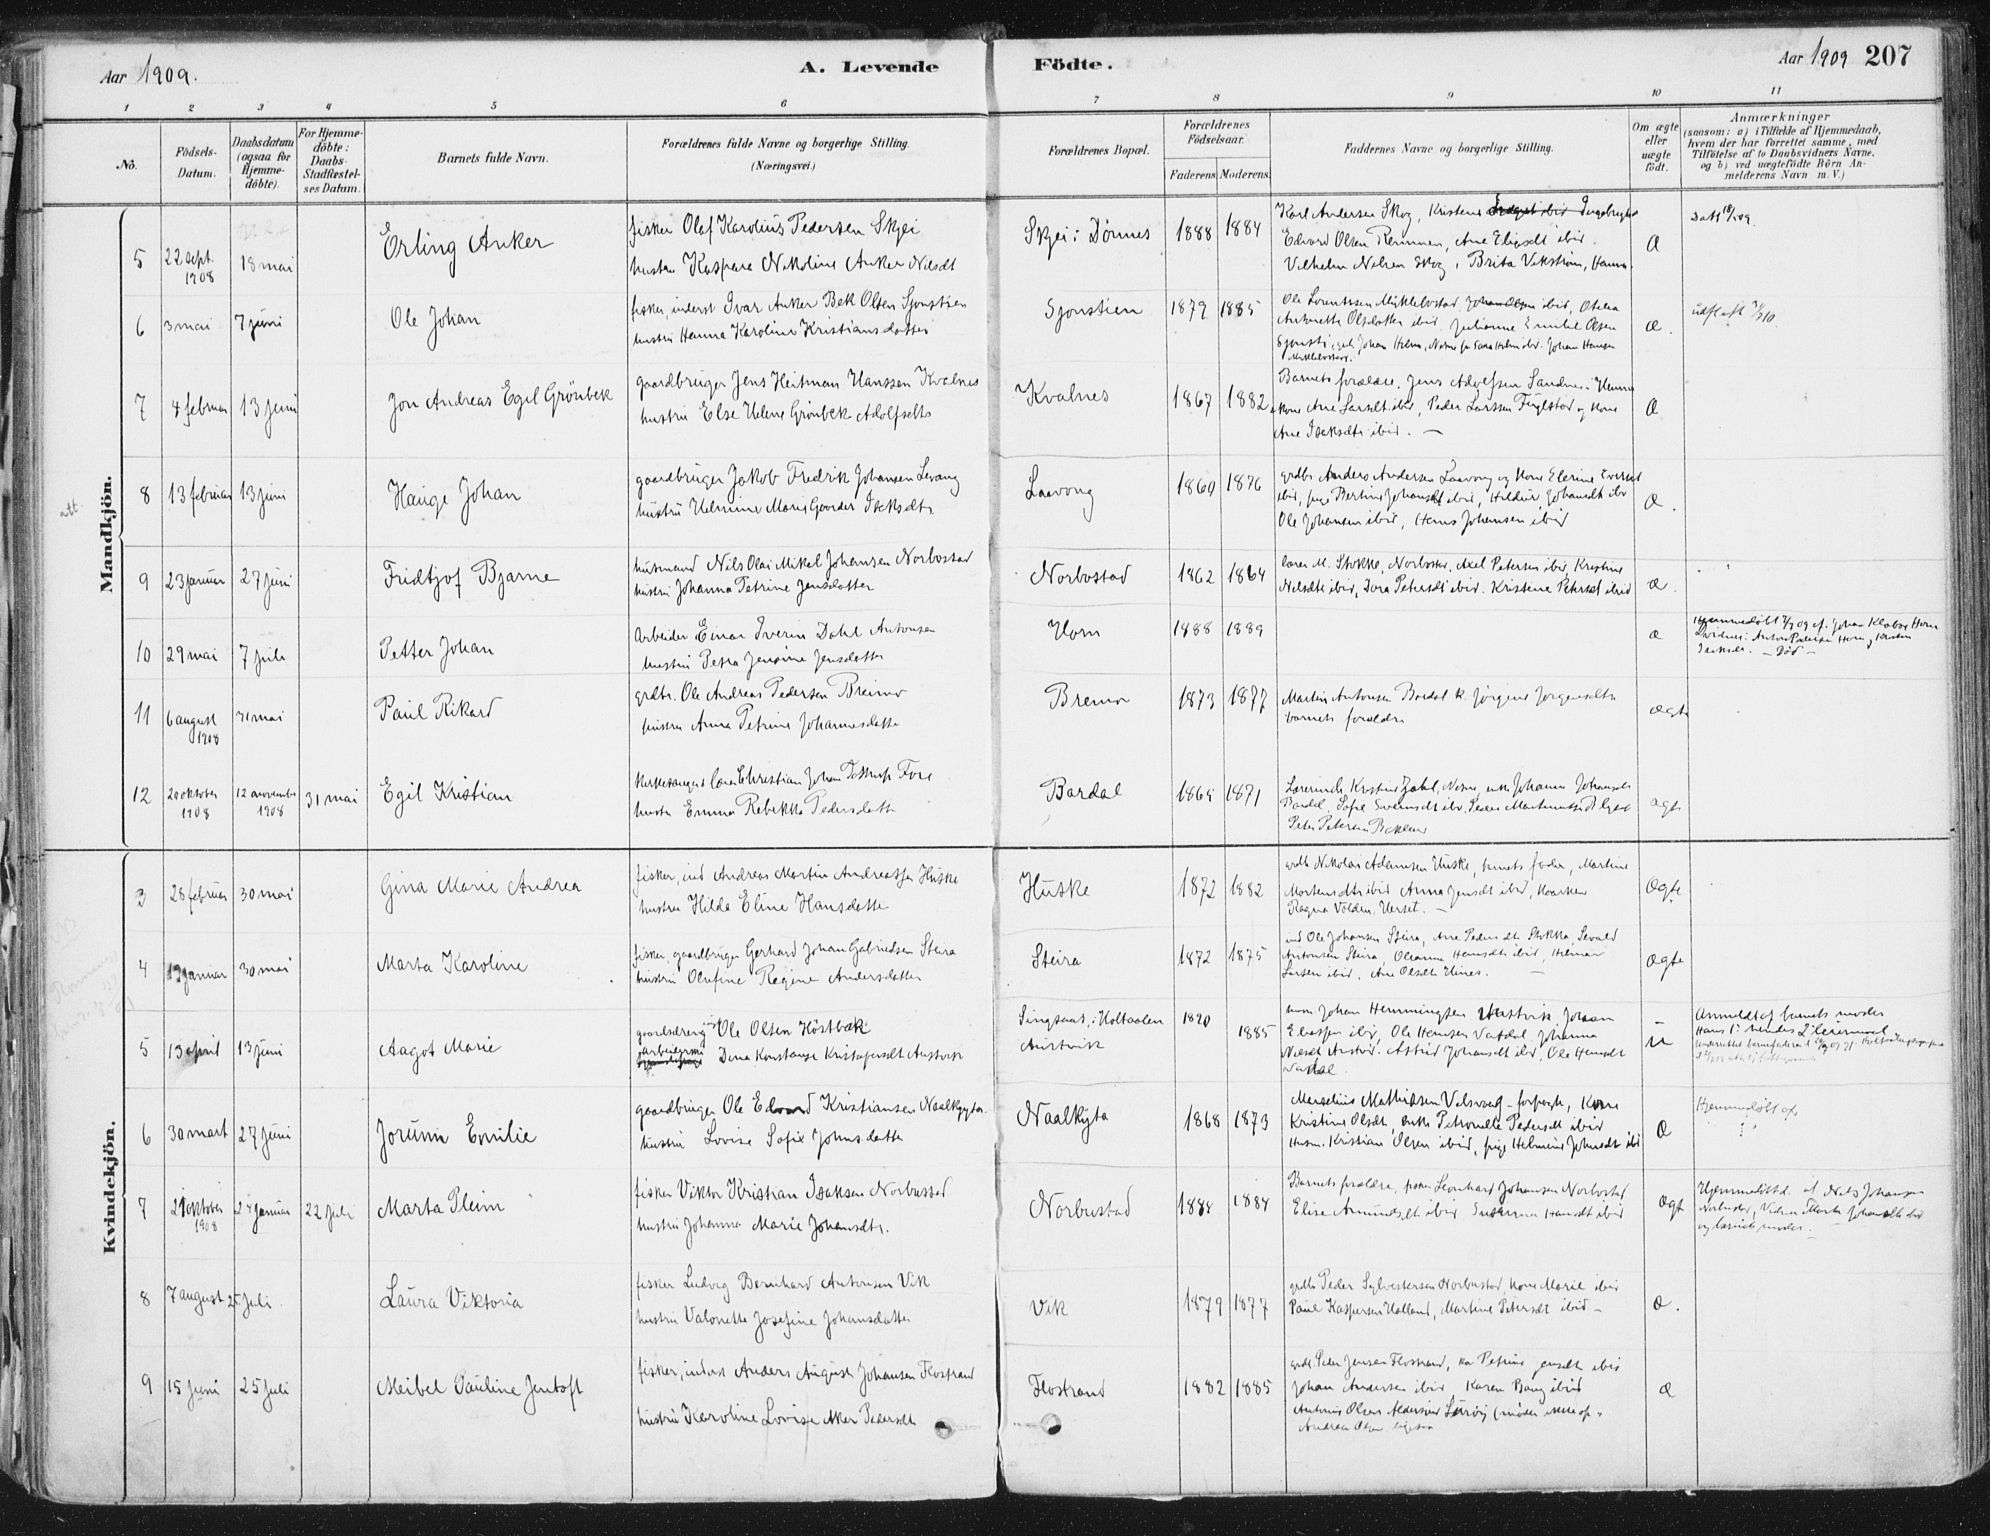 Aar 1909.
A. Levende Födte.
Aar 1909 207
1 2 3 4 5 6 7 8 9 10 11
No.
Födsels-Datum.
Daabsdatum (ogsaa for Hjemme-döbte).
For Hjemme-döbte: Daabs-Stadfæstel-ses Datum.
Barnets fulde Navn.
Forældrenes fulde Navne og borgerlige Stilling. (Næringsvei.)
Forældrenes Bopæl.
Forældrenes Födselsaar.
Faderens Moderens
Faddernes Navne og borgerlige Stilling.
Om ægte eller uægte födt.
Anmærkninger
(saasom: a) i Tilfælde af Hjemmedaab,
hvem der har forrettet samme, med
Tilföielse af to Daabsvidners Navne,
og b) ved uægtefödte Börn An-
melderens Navn m. V.)
Mandkjön.
att.
5 22 sept. 1908 18 mai Erling Anker
fisker Olaf Karolius Pedersen Skjei
hustru Kaspara Nikoline Anker Nilsdt
Skjei i Dönnes 1888 1884
Karl Andersen Skog, Kristine
Edvard Olsen Remmen, Ane Eliasdt ibid.
Vilhelm Nilsen Skog, Brita Vikström, Hamn.
Æ
6 3 mai 7 juni Ole Johan
fisker, inderst Ivar Anker Bek Olsen Sjonstien
hustru Hanna Karoline Kristiansdatter
Sjonstien 1879 1885
Ole Lorentssen Myklebostad Johan Olsen ibid, Otelia
Antonette Olsdatter ibid, Julianne Emilie Olsen
æ.
7 4 februar 13 juni Jon Andreas Egil Grönbek
gaardbruger Jens Heitman Hanssen Kvalnes
hustru Else Helene Grönbek Adolfsdtr
Kvalnes 1867 1882
Barnets forældre, Jens Adolfsen Sandnes i Hemnes
Kone Ane Larsdt ibid, Peder Larssen Fuglstad og Kone
Ane Isaksdtr ibid. —
Æ
8 13 februar 13 juni Hauge Johan
gaardbruger Jakob Fredrik Johansen Levang
hustru Helmine Marie Gaarder Isaksdtr
Laavong 1860 1876
grdbr Anders Andersen Laavong og Kone Elerine Evensd
ibid, pige Bertine Johansdt ibid, Hildur Johansdt ibd
Ole Johansen ibid, Hans Johansen ibid
Æ.
9 23 januar 27 juni Fridtjof Bjarne
husmand Nils Olai Mikal Johansen Norbostad
hustru Johanna Petrine Jensdatter
Norbostad 1862 1864
lærer M. Stokke, Norbostad, Axel Petersen ibid, Kristine
Nilsdtr ibid, Dora Petersdt ibid. Kristine Petersdt ibid
æ.
10 29 mai 7 juli Petter Johan
Arbeider Einar Iverin Dahl Antonsen
hustru Petra Jensine Jensdatter
Horn 1888 1889
æ
Hjemmedöbt 7/7 09 af Johan Klabo Horn
Anton Pedersen Horn
— död —
11 6 august 1908 31 mai Paul Rikard
grdbr. Ole Andreas Pedersen Breimo
hustru Anna Petrine Johannesdatter
Bremo 1873 1877
Martin Antonsen Bardal k. Jörgine Jörgensdtr
barnets forældre
ægte
12 20 oktober 1908 12 november 1908 31 mai Egil Kristian
Kirkesanger & lærer Christian Johan Tostrup Fore
hustru Emma Rebekka Pedersdatter
Bardal 1864 1871
Petter Petersen
ægte
Kvindekjön.
3 28 februar 30 mai Gina Marie Andrea
fisker, ind Andreas Martin Andreassen Huske
hustru Hilda Eline Hansdatter
Huske 1872 1882
grdb Nikolai Adamsen Huske, barnets fader, Martine
Mortensdtr ibid Anna Jensdt ibid, Haaken
Ragna Volden, Herset. —
Ægte
4 19 januar 30 mai Marta Karoline
fisker, gaardbruger Gerhard Johan Gabrielsen Steira
hustru Olufine Regine Andersdatter
Steira 1872 1875
ind Ole Johansen Steira, Ane Pedersdt Stokka, Sevald
Antonsen Steira, Oleanna Hansdt ibid, Hilmar
Larsen ibid, Ane Olsdt Hines. —
Ægte
5 13 april 13 juni Aagot Marie
gaardsdreng Ole Olsen Höstbak
arbeiderske Dina Konstanse Kristofersdt Austvik
Singsaas, i Holtaalen
Austvik
1890 1885
Johan Hemmingsen Austvik Johan
Eliassen ibid, Ole Hansen Vatdal, Johanna
Astrid Johansdt ibid, Ole Hansdt
Vatdal
u
Anmeldt af barnets moder
Hans 1ste hendes 2det leiermaal
6 30 mart 27 juni Jorunn Emilie
gaardbruger Ole Edvard Kristiansen Naalkyta
hustru Lovise Sofie Johnsdatter
Naalkyta 1868 1873
Marselius Mathiassen Valsvaag — Kone
Kristine Olsdt, enke Petronelle Pedersdt ibid
Husm. Kristian Olsen ibid, pige Helmine Johnsdt ibid
Æ
Hjemmedöbt af
7 21 oktober 1908 24 januar 22 juli Marta Pleim
fisker Viktor Kristian Isaksen Norbustad
hustru Johanna Marie Johansdtr.
Norbustad 1884 1884
Barnets forældre, fisker Leonhard Johansen Norbostad
Elise Amundsdt ibid Susanna Hansdt ibid
Ægt
Hjemmedöbt. af Nils Johansen
Norbustad, Vidner Marta Johansdt ibid
og barnets moder. —
8 7 august 25 juli Laura Viktoria
fisker Ludvig Bernhard Antonsen Vik
hustru Valonette Josefine Johansdatter
Vik 1879 1877
grdb Peder Sylvestersen Norbustad, Kone Marie ibid
Paul Kaspersen Holland, Martine Petersdt ibid —
Æ.
9 15 juni 25 juli Meibel Pauline Jentoft
fisker, inderst Anders August Johansen Flostrand
hustru Karoline Lovise Aker Pedersdt
Flostrand 1882 1885
grdb. Peder Jensen Flostrand, kone Petrine Jensdt ibid
Johan Andersen ibid, Karen Bang ibid
Antonius Olsen Aldersund Luröy (möder ikke op.
Andrea Olsen
æ